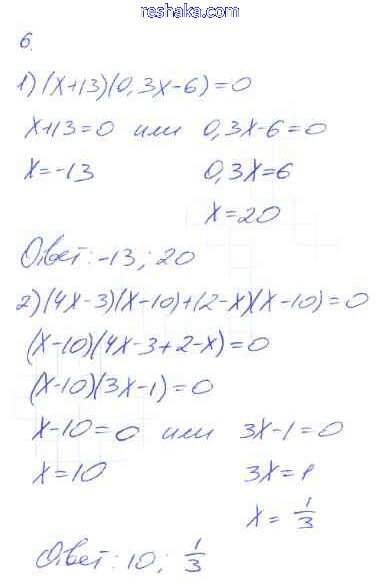 reshaka.com
6.
1) (x+13)(0,3x-6)=0
x+13=0 или 0,3x-6=0
x=-13 0,3x=6
x=20
Ответ: -13; 20
2) (4x-3)(x-10)+(2-x)(x-10)=0
(x-10)(4x-3+2-x)=0
(x-10)(3x-1)=0
x-10=0 или 3x-1=0
x=10 3x=1
x=1/3
Ответ: 10; 1/3